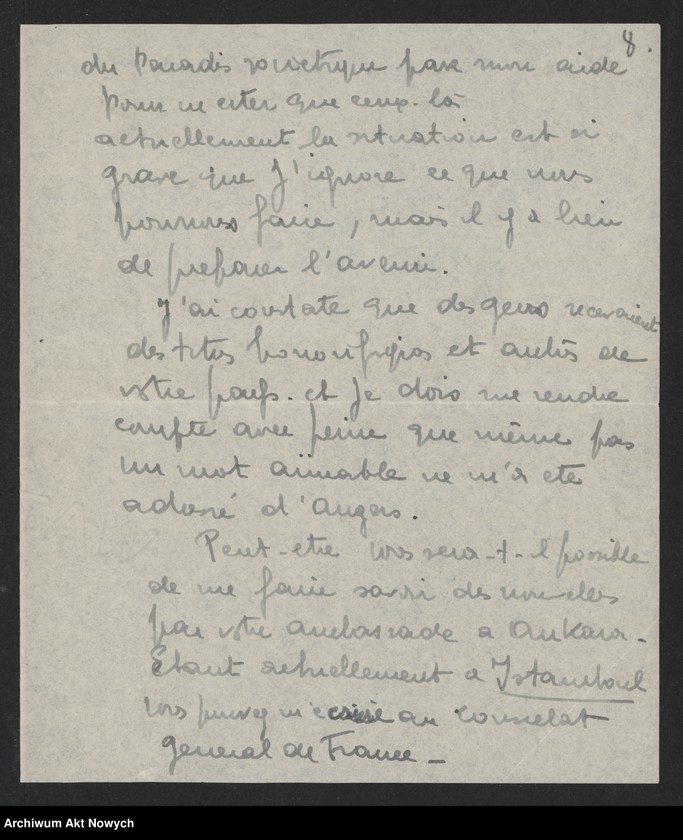 8.
du Paradis sovietique par mon aide
pour ne citer que ceux-là
actuellement la situation est si
grave que j'ignore ce que nous
pouvons faire, mais il y a lieu
de preparer l'avenir.
J'ai constate que des gens recevaient
des titres honorifiques et autres de
votre pays. et je dois me rendre
compte avec peine que même pas
un mot aimable ne m'a ete
adressé d'Angers.
Peut-etre vous sera-t-il possible
de me faire savoir des nouvelles
par votre ambassade a Ankara.
Etant actuellement a Istamboul
vous pouvez m'ecrire au Consulat
general de France -
Archiwum Akt Nowych